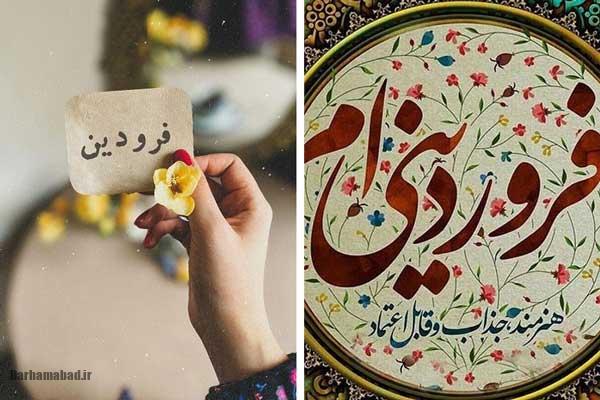 فرودین
فروردینی ام
هنرمند، جذاب و قابل اعتماد
Darhamabad.ir